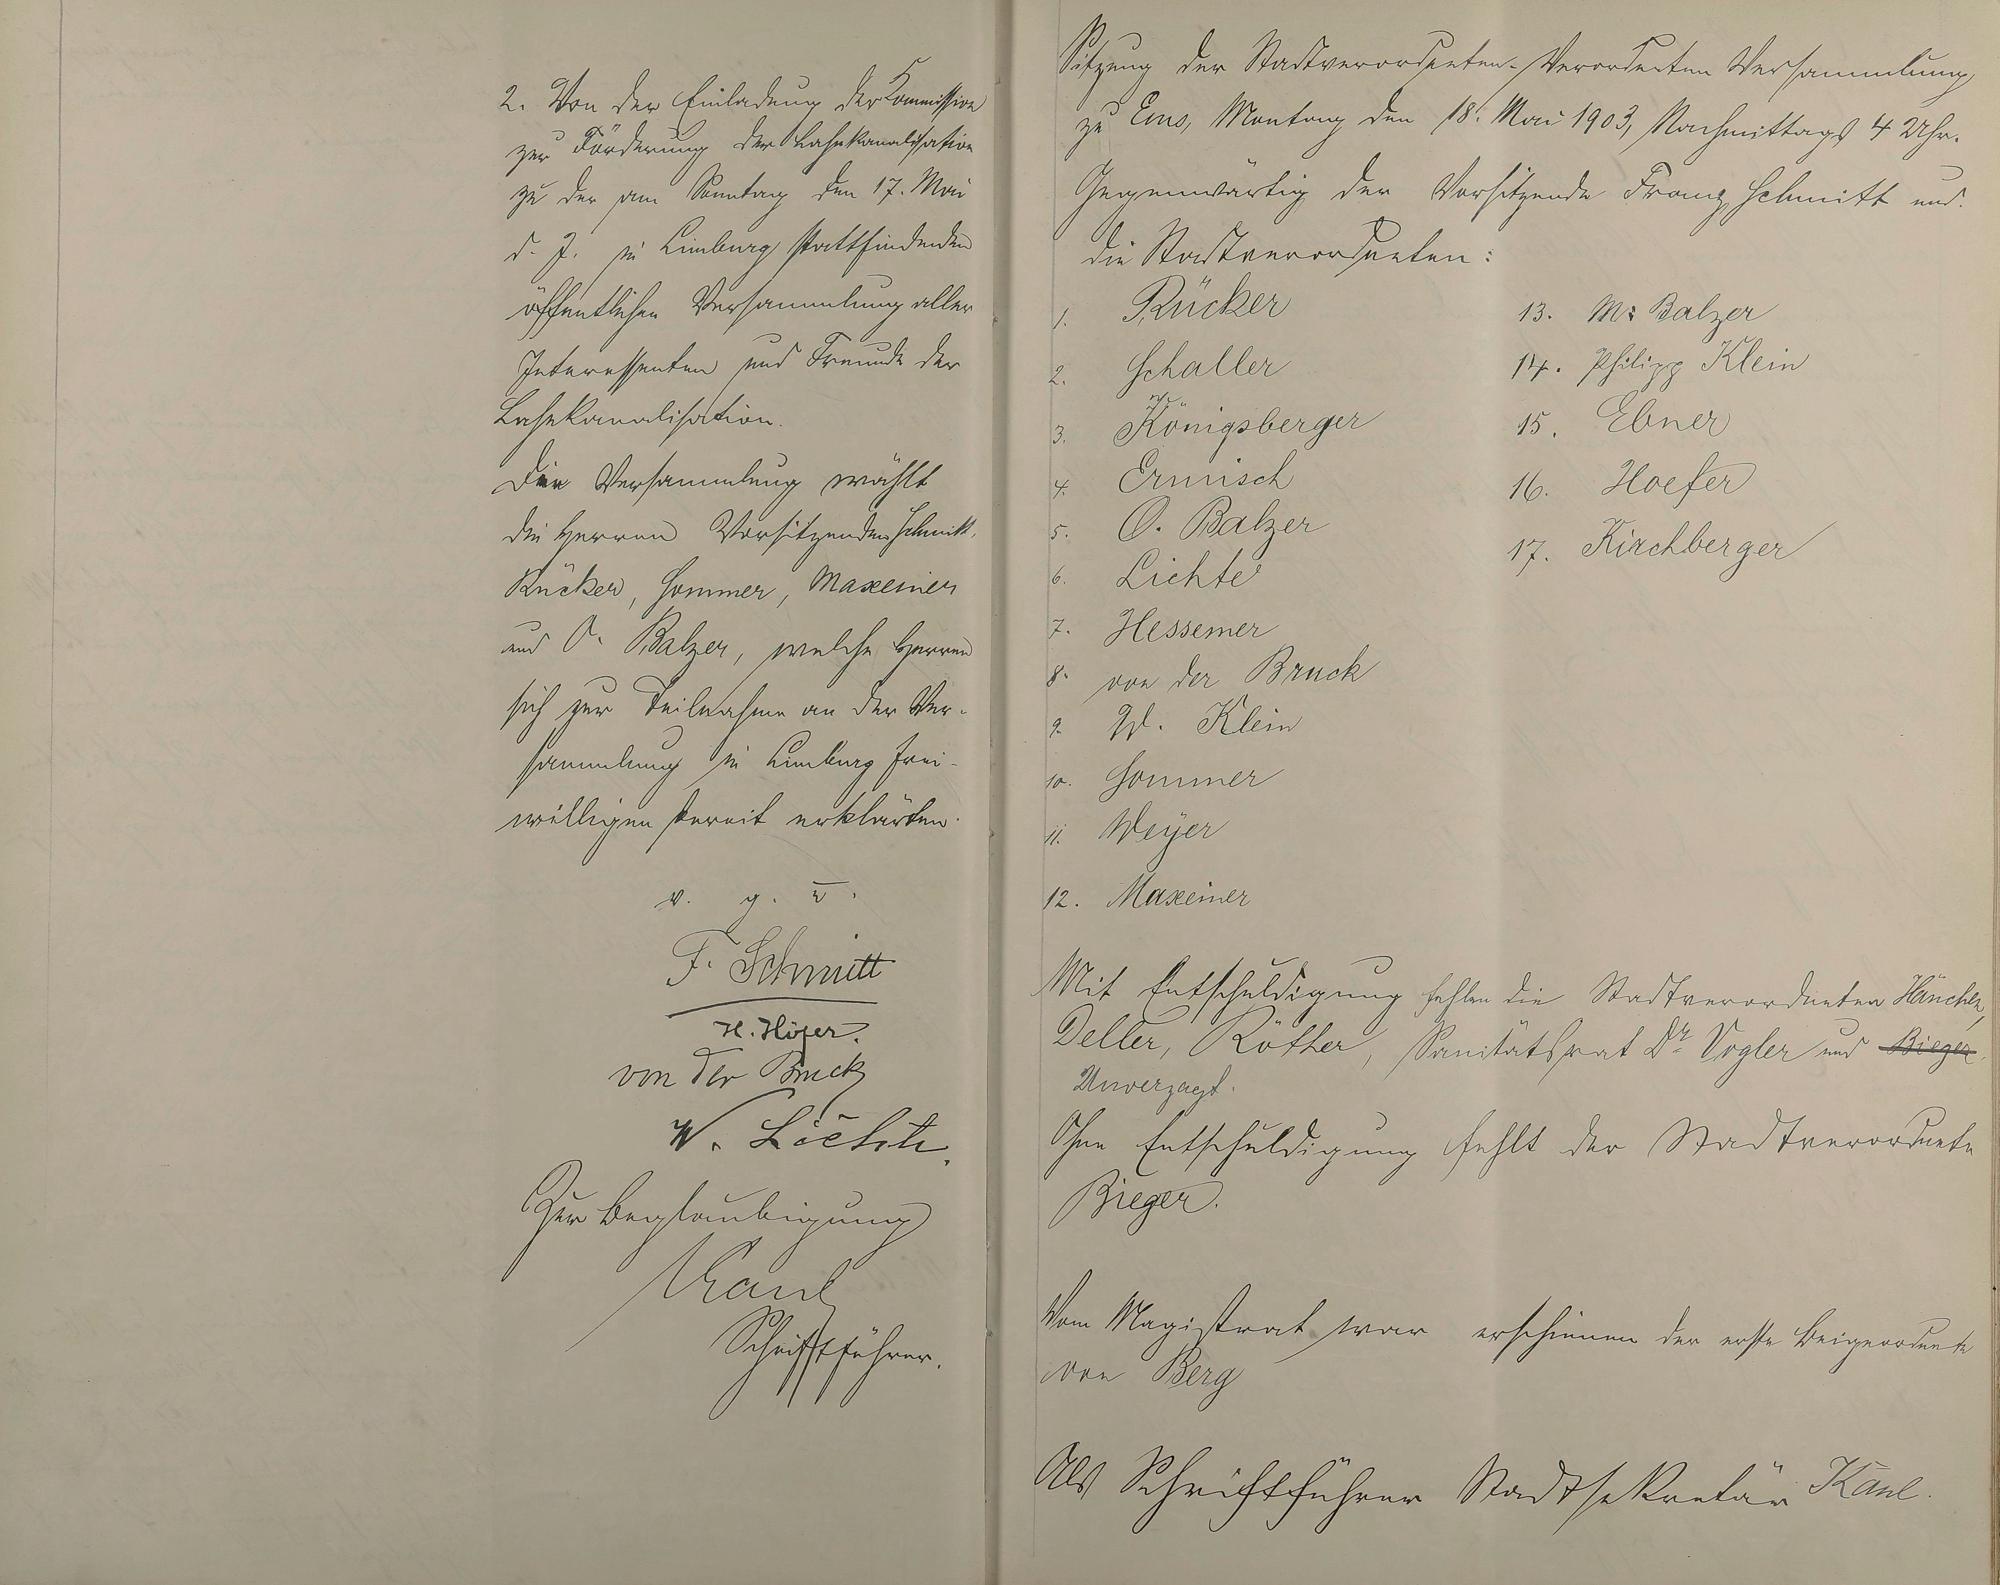 2. Von der Einladung der Kommission
zur Förderung der Lahnkanalisation
zu der am Sonntag den 17. Mai
d. J. in Limburg stattfindenden
öffentlichen Versammlung aller
Interessenten und Freunde der
Lahnkanalisation.
Die Versammlung wählt
die Herren Vorsitzenden Schmitt,
Rücker, Sommer, Maxeiner
und O. Balzer, welche Herren
sich zur Teilnahme an der Ver-
sammlung in Limburg frei-
willigen bereit erklärten.
v. g. u.
F. Schmitt
H. Höfer.
von der Bruck
W. Lichte.
Zur Beglaubigung
Kaul
Schriftführer.
Sitzung der Stadtverordneten-Verordneten Versammlung
zu Ems, Montag den 18. Mai 1903, Nachmittags 4 Uhr.
Gegenwärtig der Vorsitzende Franz Schmitt und
die Stadtverordneten:
1. Rücker
2. Schaller
3. Königsberger
4. Ermisch
5. O. Balzer
6. Lichte
7. Hessemer
8. von der Bruck
9. W. Klein
10. Sommer
11. Weyer
12. Maxeiner
13. M: Balzer
14. Philipp Klein
15. Ebner
16. Hoefer
17. Kirchberger
Mit Entschuldigung fehlen die Stadtverordneten
Deller, Röther, Sanitätsrat Dr. Vogler und Bieger
Unverzagt.
Ohne Entschuldigung fehlt der Stadtverordnete
Bieger.
Vom Magistrat war erschienen der erste Beigeordnete
von Berg
Als Schriftführer Stadtsekretär Kaul.